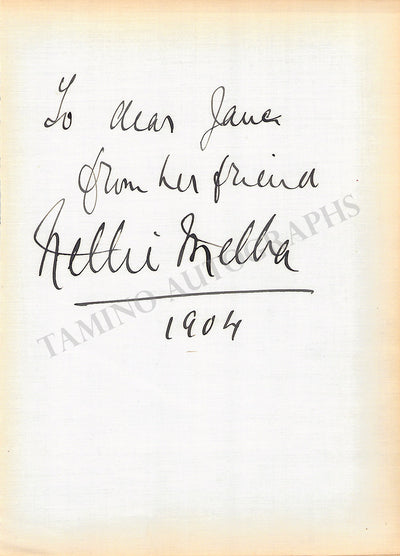 To dear Jane
from her friend
Nellie Melba
1904
TAMINO AUTOGRAPHS